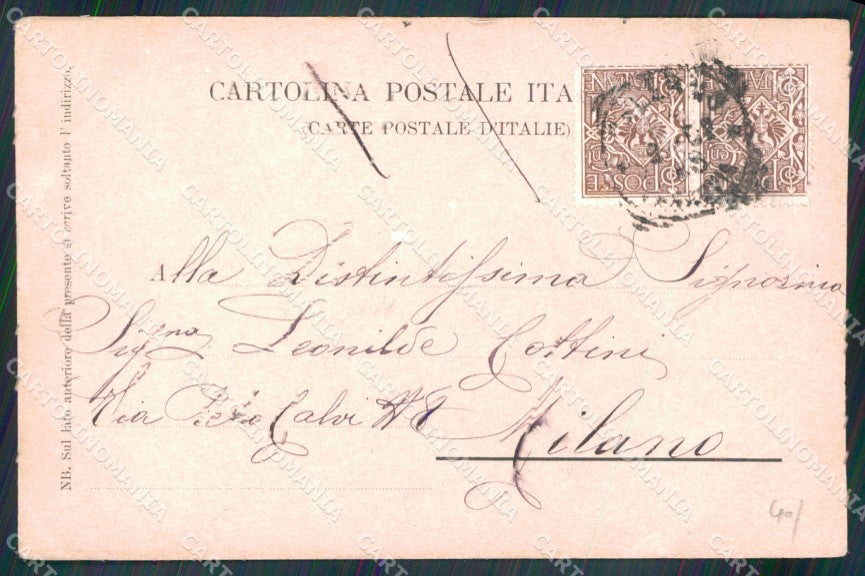 CARTOLINA POSTALE ITA
(CARTE POSTALE D'ITALIE)
Alla Distintissima Signorina
Sig.na Leonilde Cottini
Via Calvi N 8
Milano
NB. Sul lato anteriore della presente si scrive soltanto l'indirizzo.
POSTE
POSTE
40/
CARTOLINOMANIA